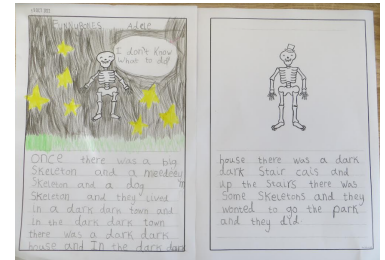 FUNNYBONES Adele
I don't know
whow to do!
once there was a big
Skeleton and a
Skeleton and a dog
Skeleton and they lived
in a dark dark town and
in the dark dark town
there was a dark dark
house and In the dark dark
house there was a dark
dark Stair cais and
up the stairs there was
Some Skeletons and they
wonted to go the park
and they did